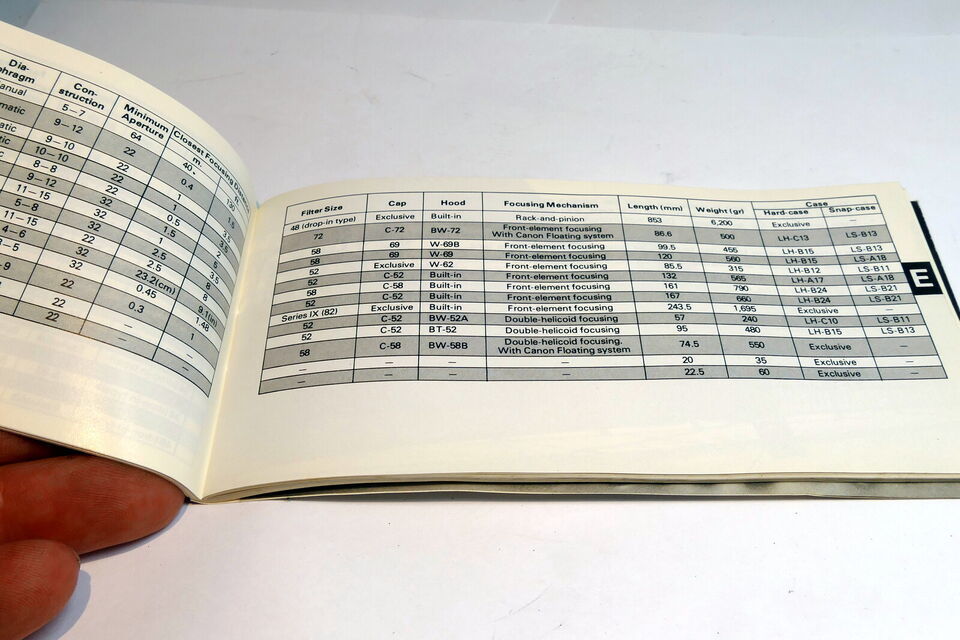 Con-
struction
Minimum
Aperture
Closest Focusing
m.
5–7
64
40
9–12
22
0.4
9–10
22
1
10–10
22
0.5
8–8
22
1.5
9–12
32
1
11–15
32
2.5
8–5
32
2.5
11–15
32
5
4–6
22
23.2(cm)
9.1(in)
3–5
32
0.45
1.48
22
0.3
1
22
–
–
22
–
–
Filter Size Cap Hood Focusing Mechanism Length (mm) Weight (gr) Case
Hard-case Snap-case
48 (drop-in type) Exclusive Built-in Rack-and-pinion 853 6,200 Exclusive –
72 C-72 BW-72 Front-element focusing
With Canon Floating system 86.6 500 LH-C13 LS-B13
58 69 W-69B Front-element focusing 99.5 455 LH-B15 LS-B13
58 69 W-69 Front-element focusing 120 560 LH-B15 LS-A18
52 Exclusive W-62 Front-element focusing 85.5 315 LH-B12 LS-B11
52 C-52 Built-in Front-element focusing 132 565 LH-A17 LS-A18
58 C-58 Built-in Front-element focusing 161 790 LH-B24 LS-B21
52 C-52 Built-in Front-element focusing 167 660 LH-B24 LS-B21
Series IX (82) Exclusive Built-in Front-element focusing 243.5 1,695 Exclusive –
52 C-52 BW-52A Double-helicoid focusing 57 240 LH-C10 LS-B11
52 C-52 BT-52 Double-helicoid focusing 95 480 LH-B15 LS-B13
58 C-58 BW-58B Double-helicoid focusing.
With Canon Floating system 74.5 550 Exclusive –
– – – – 20 35 Exclusive –
– – – – 22.5 60 Exclusive –
E